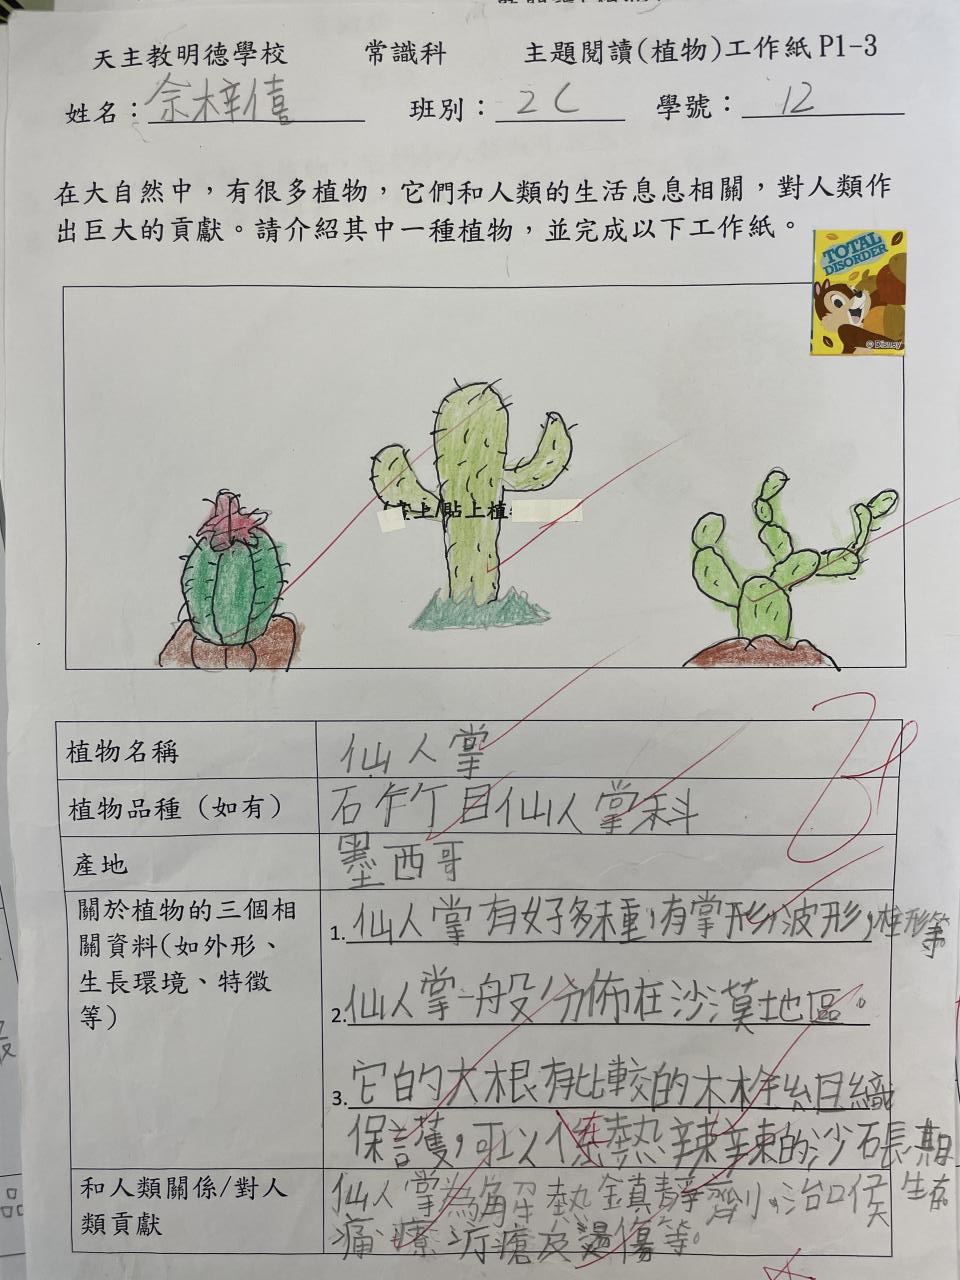 天主教明德學校 常識科 主題閱讀(植物)工作紙 P1-3
姓名： 佘梓僖 班別： 2C 學號： 12
在大自然中，有很多植物，它們和人類的生活息息相關，對人類作
出巨大的貢獻。請介紹其中一種植物，並完成以下工作紙。
TOTAL
DISORDER
©Disney
畫上/貼上植
植物名稱 仙人掌
植物品種（如有） 石竹目仙人掌科
產地 墨西哥
關於植物的三個相
關資料(如外形、
生長環境、特徵
等)
1. 仙人掌有好多種，有掌形，波形，柱形等。
2. 仙人掌一般分佈在沙漠地區。
3. 它的大根有比較的木栓組織
保護，可以在熱辣辣的沙石長期
生存
和人類關係/對人
類貢獻
仙人掌為解熱鎮靜劑，治口侯
痛，療疔瘡及燙傷等。